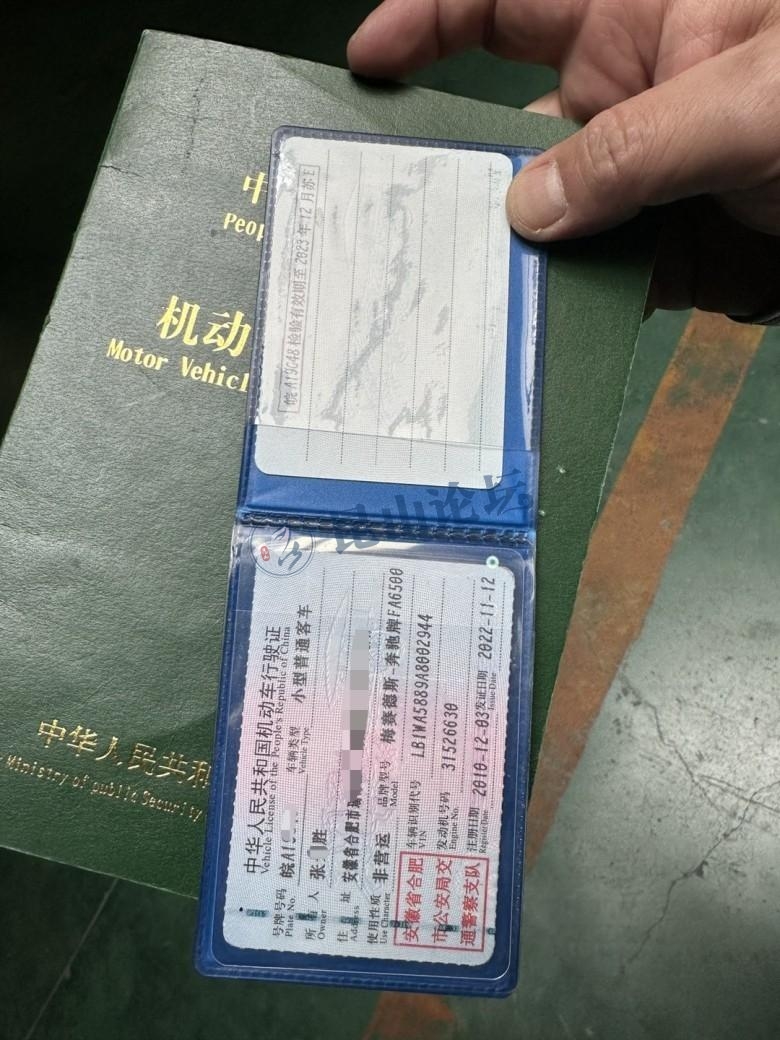 机动
Motor Vehicl
中华人民共和
Ministry of public Security
皖A19C48检验有效期至2023年12月苏E
昆山论坛
中华人民共和国机动车行驶证
Vehicle License of the People's Republic of China
号牌号码 皖A19 车辆类型 小型普通客车
Plate No. Vehicle Type
所 人 张 胜
Owner
住 址 安徽省合肥市
Address
使用性质 非营运 品牌型号 梅赛德斯-奔驰牌FA6500
Use Character Model
车辆识别代号 LB1WA5889A8002944
VIN
发动机号码 31526630
Engine No.
注册日期 2010-12-03 发证日期 2022-11-12
Register Date Issue Date
安徽省合肥
市公安局交
通警察支队